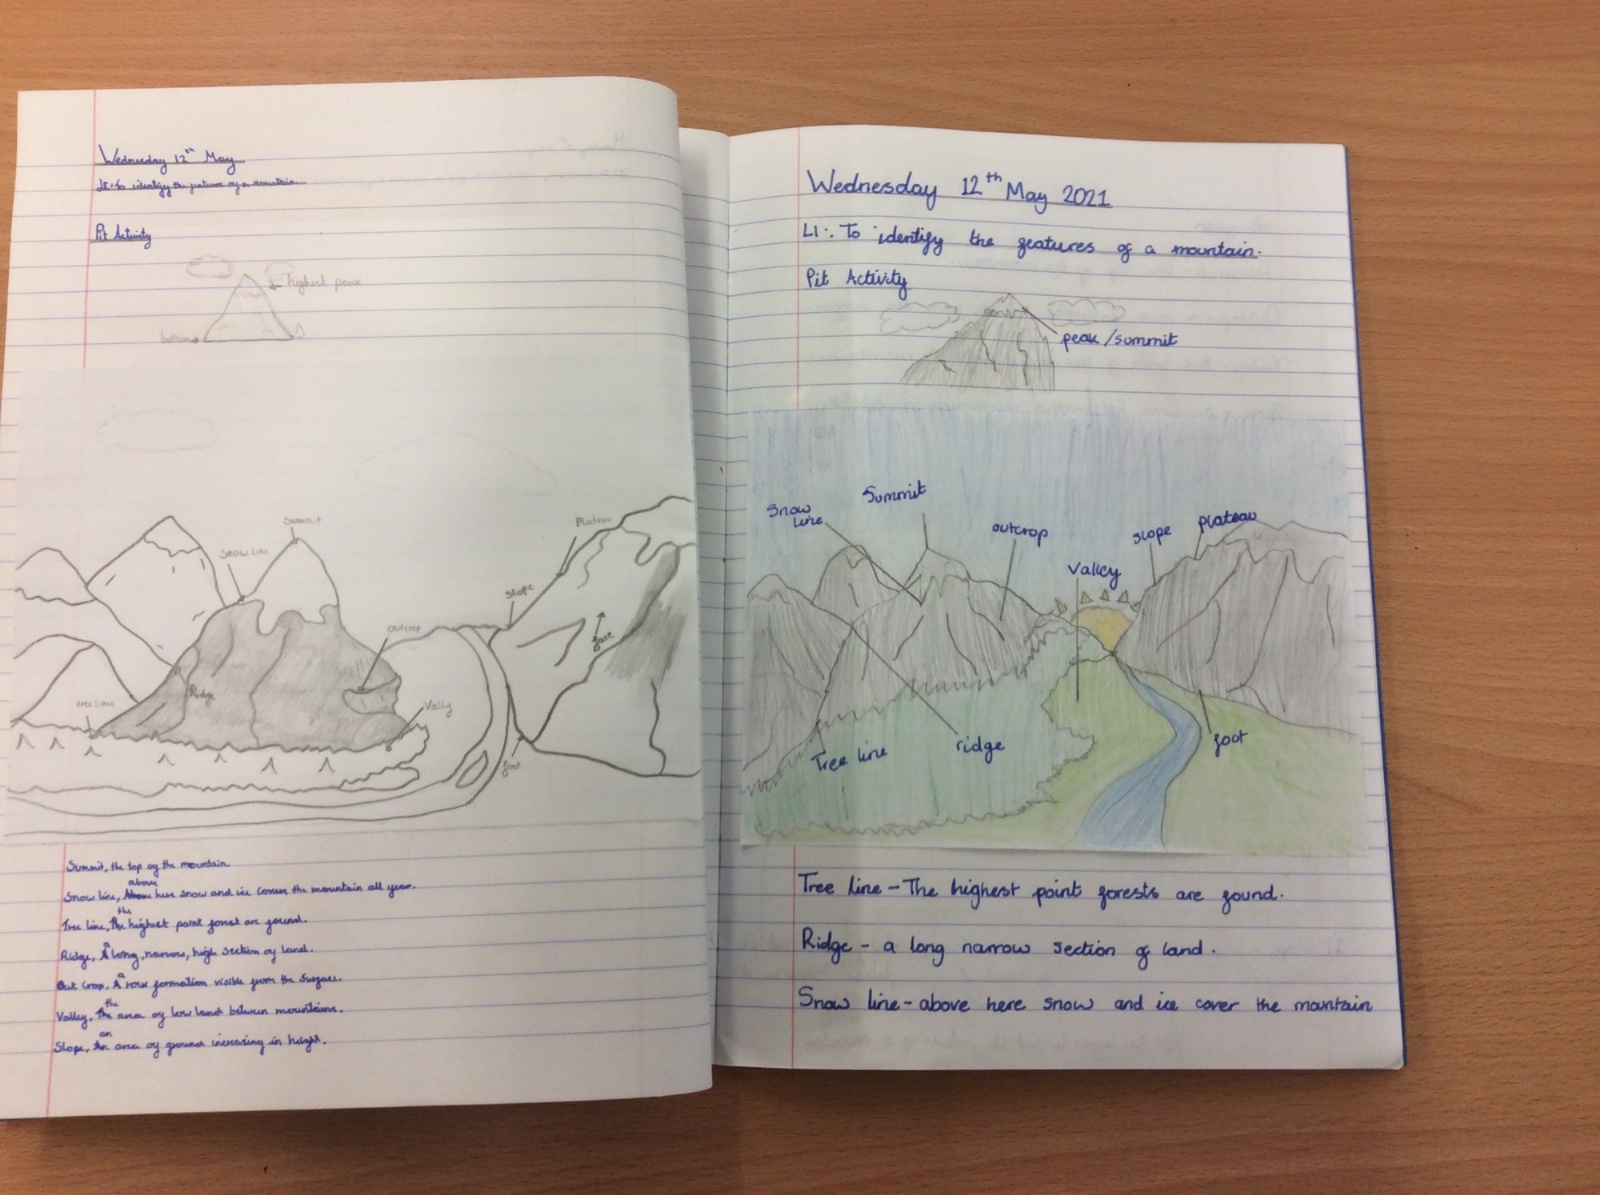 Wednesday 12th May
LI: To identify the features of a mountain.
Pit Activity
highest peak
bottom
Summit
Snow line
Plateau
Slope
outcrop
face
Ridge
tree line
Vally
foot
Summit, the top of the mountain.
above
Snow line, here snow and ice covers the mountain all year.
the
Tree line, the highest point forest are found.
a
Ridge, A long, narrow, high section of land.
a
Out crop, A rock formation visible from the surface.
the
Valley, The area of low land between mountains.
an
Slope, An area of ground increasing in height.
Wednesday 12th May 2021
LI:. To identify the features of a mountain.
Pit Activity
peak/summit
Summit
Snow
line
outcrop
slope
plateau
Valley
Tree line
ridge
foot
Tree line - The highest point forests are found.
Ridge - a long narrow section of land.
Snow line - above here snow and ice cover the mountain